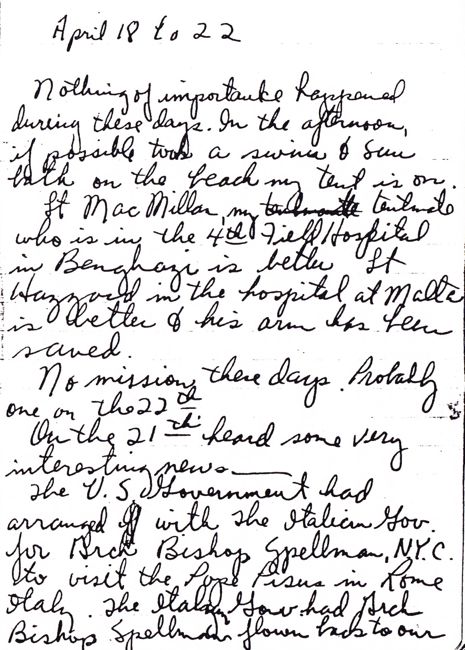 April 18 to 22
Nothing of importanke happened
during these days. In the afternoon,
if possible took a swim & sun
bath on the beach my tent is on.
Lt MacMillan, my tentmate
who is in the 4th Field Hospital
in Benghazi is better Lt
Hazzard in the hospital at Malta
is better & his arm has been
saved.
No mission these days. Probably
one on the 22th
On the 21th heard some very
interesting news
The U.S. Government had
arranged with the Italian Gov.
for Arch Bishop Spellman, N.Y.C.
to visit the Pope Pisus in Rome
Italy. The Italian Gov. had Arch
Bishop Spellman flown back to our